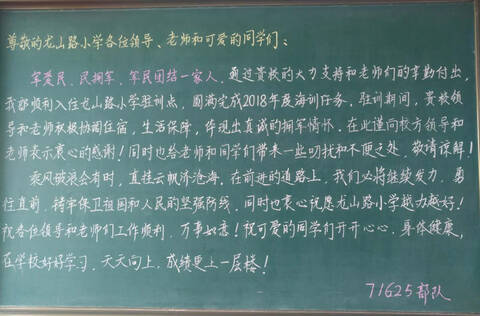 尊敬的龙山路小学各位领导、老师和可爱的同学们：
军爱民、民拥军、军民团结一家人，通过贵校的大力支持和老师们的辛勤付出，
我部顺利入住龙山路小学驻训点，圆满完成2018年度海训任务。驻训期间，贵校领
导和老师积极协调住宿，生活保障，体现出真诚的拥军情怀，在此谨向校方领导和
老师表示衷心的感谢！同时也给老师和同学们带来一些叨扰和不便之处，敬请谅解！
乘风破浪会有时，直挂云帆济沧海，在前进的道路上，我们必将继续发力，勇
往直前，铸牢保卫祖国和人民的坚强防线，同时也衷心祝愿龙山路小学越办越好！
祝各位领导和老师们工作顺利，万事如意！祝可爱的同学们开开心心、身体健康，
在学校好好学习，天天向上，成绩更上一层楼！
71625部队